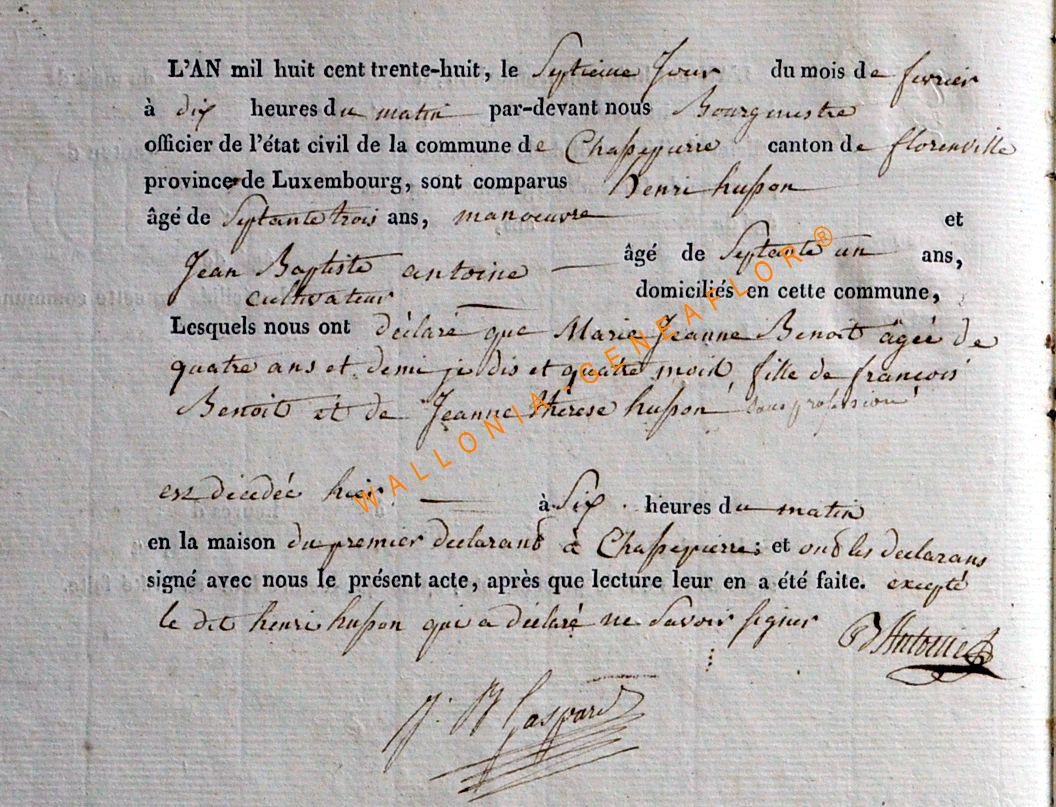 L'AN mil huit cent trente-huit, le Septieme Jour du mois de fevrier
à dix heures du matin par-devant nous Bourgmestre
officier de l'état civil de la commune de Chassepierre canton de florenville
province de Luxembourg, sont comparus henri husson
âgé de Septante trois ans, manoeuvre et
Jean Baptiste antoine âgé de Septante un ans,
cultivateur domiciliés en cette commune,
Lesquels nous ont déclaré que Marie Jeanne Benoit âgée de
quatre ans et demi je dis et quatre mois, fille de françois
Benoit et de Jeanne Therese husson, sans profession
est décédée hier à Six heures du matin
en la maison du premier declarant à Chassepierre; et ont les declarans
signé avec nous le présent acte, après que lecture leur en a été faite. excepté
le dit henri husson qui a déclaré ne Savoir signer
Antoine
J. B Gaspard
WALLONIA-GENEAFLOR®